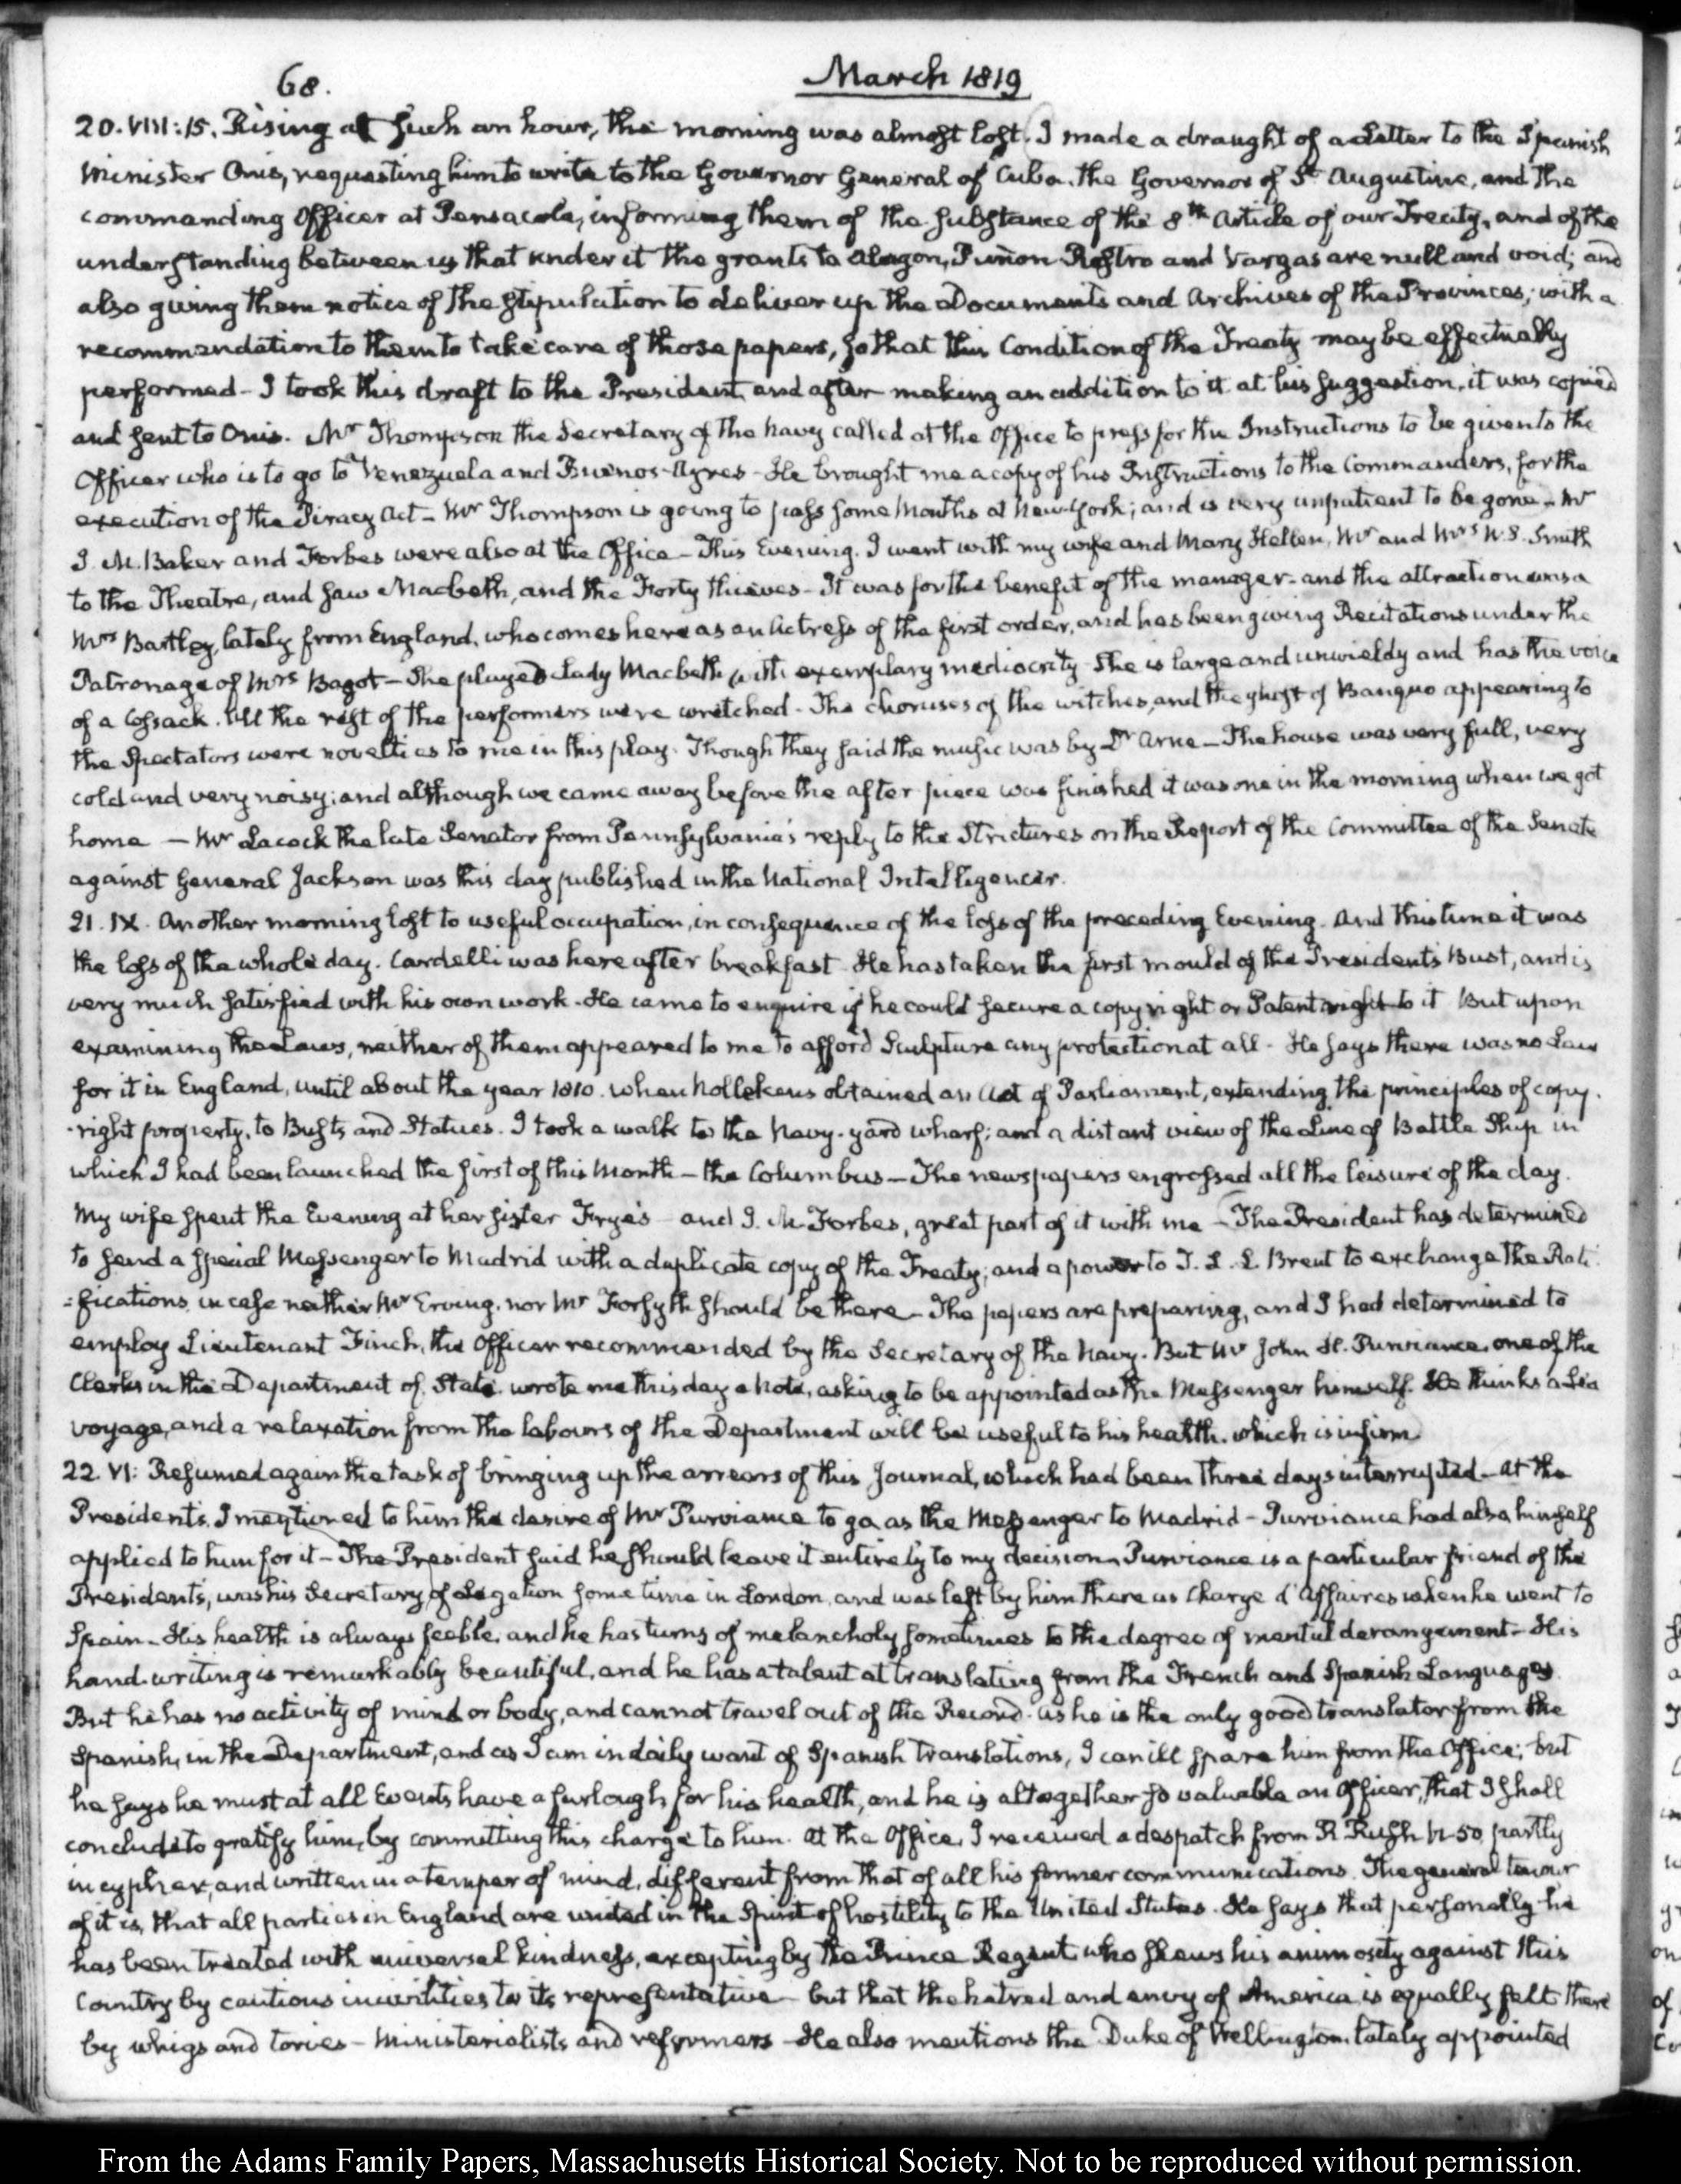 68.
March 1819
20. VIII:15. Rising at such an hour, the morning was almost lost. I made a draught of a Letter to the Spanish
Minister Onis, requesting him to write to the Governor General of Cuba, the Governor of St. Augustine, and the
commanding Officer at Pensacola, informing them of the substance of the 8th. Article of our Treaty, and of the
understanding between us that under it the grants to Alagon, Puñon Rostro and Vargas are null and void; and
also giving them notice of the stipulation to deliver up the Documents and Archives of the Provinces; with a
recommendation to them to take care of those papers, so that this Condition of the Treaty may be effectually
performed - I took this draft to the President, and after making an addition to it at his suggestion, it was copied
and sent to Onis. Mr. Thompson the Secretary of the Navy called at the Office to press for the Instructions to be given to the
Officer who is to go to Venezuela and Buenos-Ayres - He brought me a copy of his Instructions to the Commanders, for the
execution of the Piracy Act - Mr Thompson is going to pass some Months at New-York; and is very impatient to be gone - Mr
J. M. Baker and Forbes were also at the Office - This Evening, I went with my wife and Mary Hellen, Mr and Mrs W. S. Smith
to the Theatre, and saw Macbeth, and the Forty thieves - It was for the benefit of the manager - and the attraction was a
Mrs Bartley, lately from England, who comes here as an Actress of the first order, and has been giving Recitations under the
Patronage of Mrs Bagot - She played Lady Macbeth with exemplary mediocrity - She is large and unwieldy and has the voice
of a Cossack. All the rest of the performers were wretched - The choruses of the witches, and the ghost of Banquo appearing to
the Spectators were novelties to me in this play. Though they said the music was by Dr Arne - The house was very full, very
cold and very noisy; and although we came away before the after piece was finished it was one in the morning when we got
home - Mr Lacock the late Senator from Pennsylvania's reply to the Strictures on the Report of the Committee of the Senate
against General Jackson was this day published in the National Intelligencer.
21. IX. Another morning lost to useful occupation, in consequence of the loss of the preceding Evening. And this time it was
the loss of the whole day. Cardelli was here after breakfast. He has taken the first mould of the President's Bust, and is
very much satisfied with his own work - He came to enquire if he could secure a copy right or Patent right to it But upon
examining the Laws, neither of them appeared to me to afford Sculpture any protection at all - He says there was no Law
for it in England, until about the year 1810. when Nollekens obtained an Act of Parliament, extending the principles of copy-
-right property, to Busts and Statues. I took a walk to the Navy-yard wharf; and a distant view of the Line of Battle Ship in
which I had been launched the first of this Month - the Columbus - The newspapers engrossed all the leisure of the day.
My wife spent the Evening at her sister Frye's - and J. M. Forbes, great part of it with me - The President has determined
to send a special Messenger to Madrid with a duplicate copy of the Treaty; and a power to T. L. L. Brent to exchange the Rati-
=fications, in case neither Mr Erving, nor Mr Forsyth should be there - The papers are preparing, and I had determined to
employ Lieutenant Finch, the Officer recommended by the Secretary of the Navy. But Mr John H. Purviance, one of the
Clerks in the Department of State, wrote me this day a Note, asking to be appointed as the Messenger himself. He thinks a Sea
voyage, and a relaxation from the labours of the Department will be useful to his health, which is infirm.
22. VI: Resumed again the task of bringing up the arrears of this Journal, which had been three days interrupted - At the
President's, I mentioned to him the desire of Mr Purviance to go as the Messenger to Madrid - Purviance had also himself
applied to him for it - The President said he should leave it entirely to my decision. Purviance is a particular friend of the
President's, was his Secretary of Legation some time in London, and was left by him there as Charge d'Affaires when he went to
Spain - His health is always feeble, and he has turns of melancholy sometimes to the degree of mental derangement - His
hand-writing is remarkably beautiful, and he has a talent at translating from the French and Spanish Languages.
But he has no activity of mind or body, and cannot travel out of the Record. As he is the only good translator from the
Spanish, in the Department, and as I am in daily want of Spanish translations, I can ill spare him from the Office; but
he says he must at all Events have a furlough for his health, and he is altogether so valuable an Officer, that I shall
conclude to gratify him, by committing this charge to him. At the Office, I received a despatch from R. Rush N. 50, partly
in cypher, and written in a temper of mind, different from that of all his former communications. The general tenour
of it is, that all parties in England are united in the Spirit of hostility to the United States. He says that personally he
has been treated with universal kindness, excepting by the Prince Regent, who shews his animosity against this
Country by cautious incivilities to its representative - but that the hatred and envy of America is equally felt there
by whigs and tories - Ministerialists and reformers - He also mentions the Duke of Wellington, lately appointed
From the Adams Family Papers, Massachusetts Historical Society. Not to be reproduced without permission.